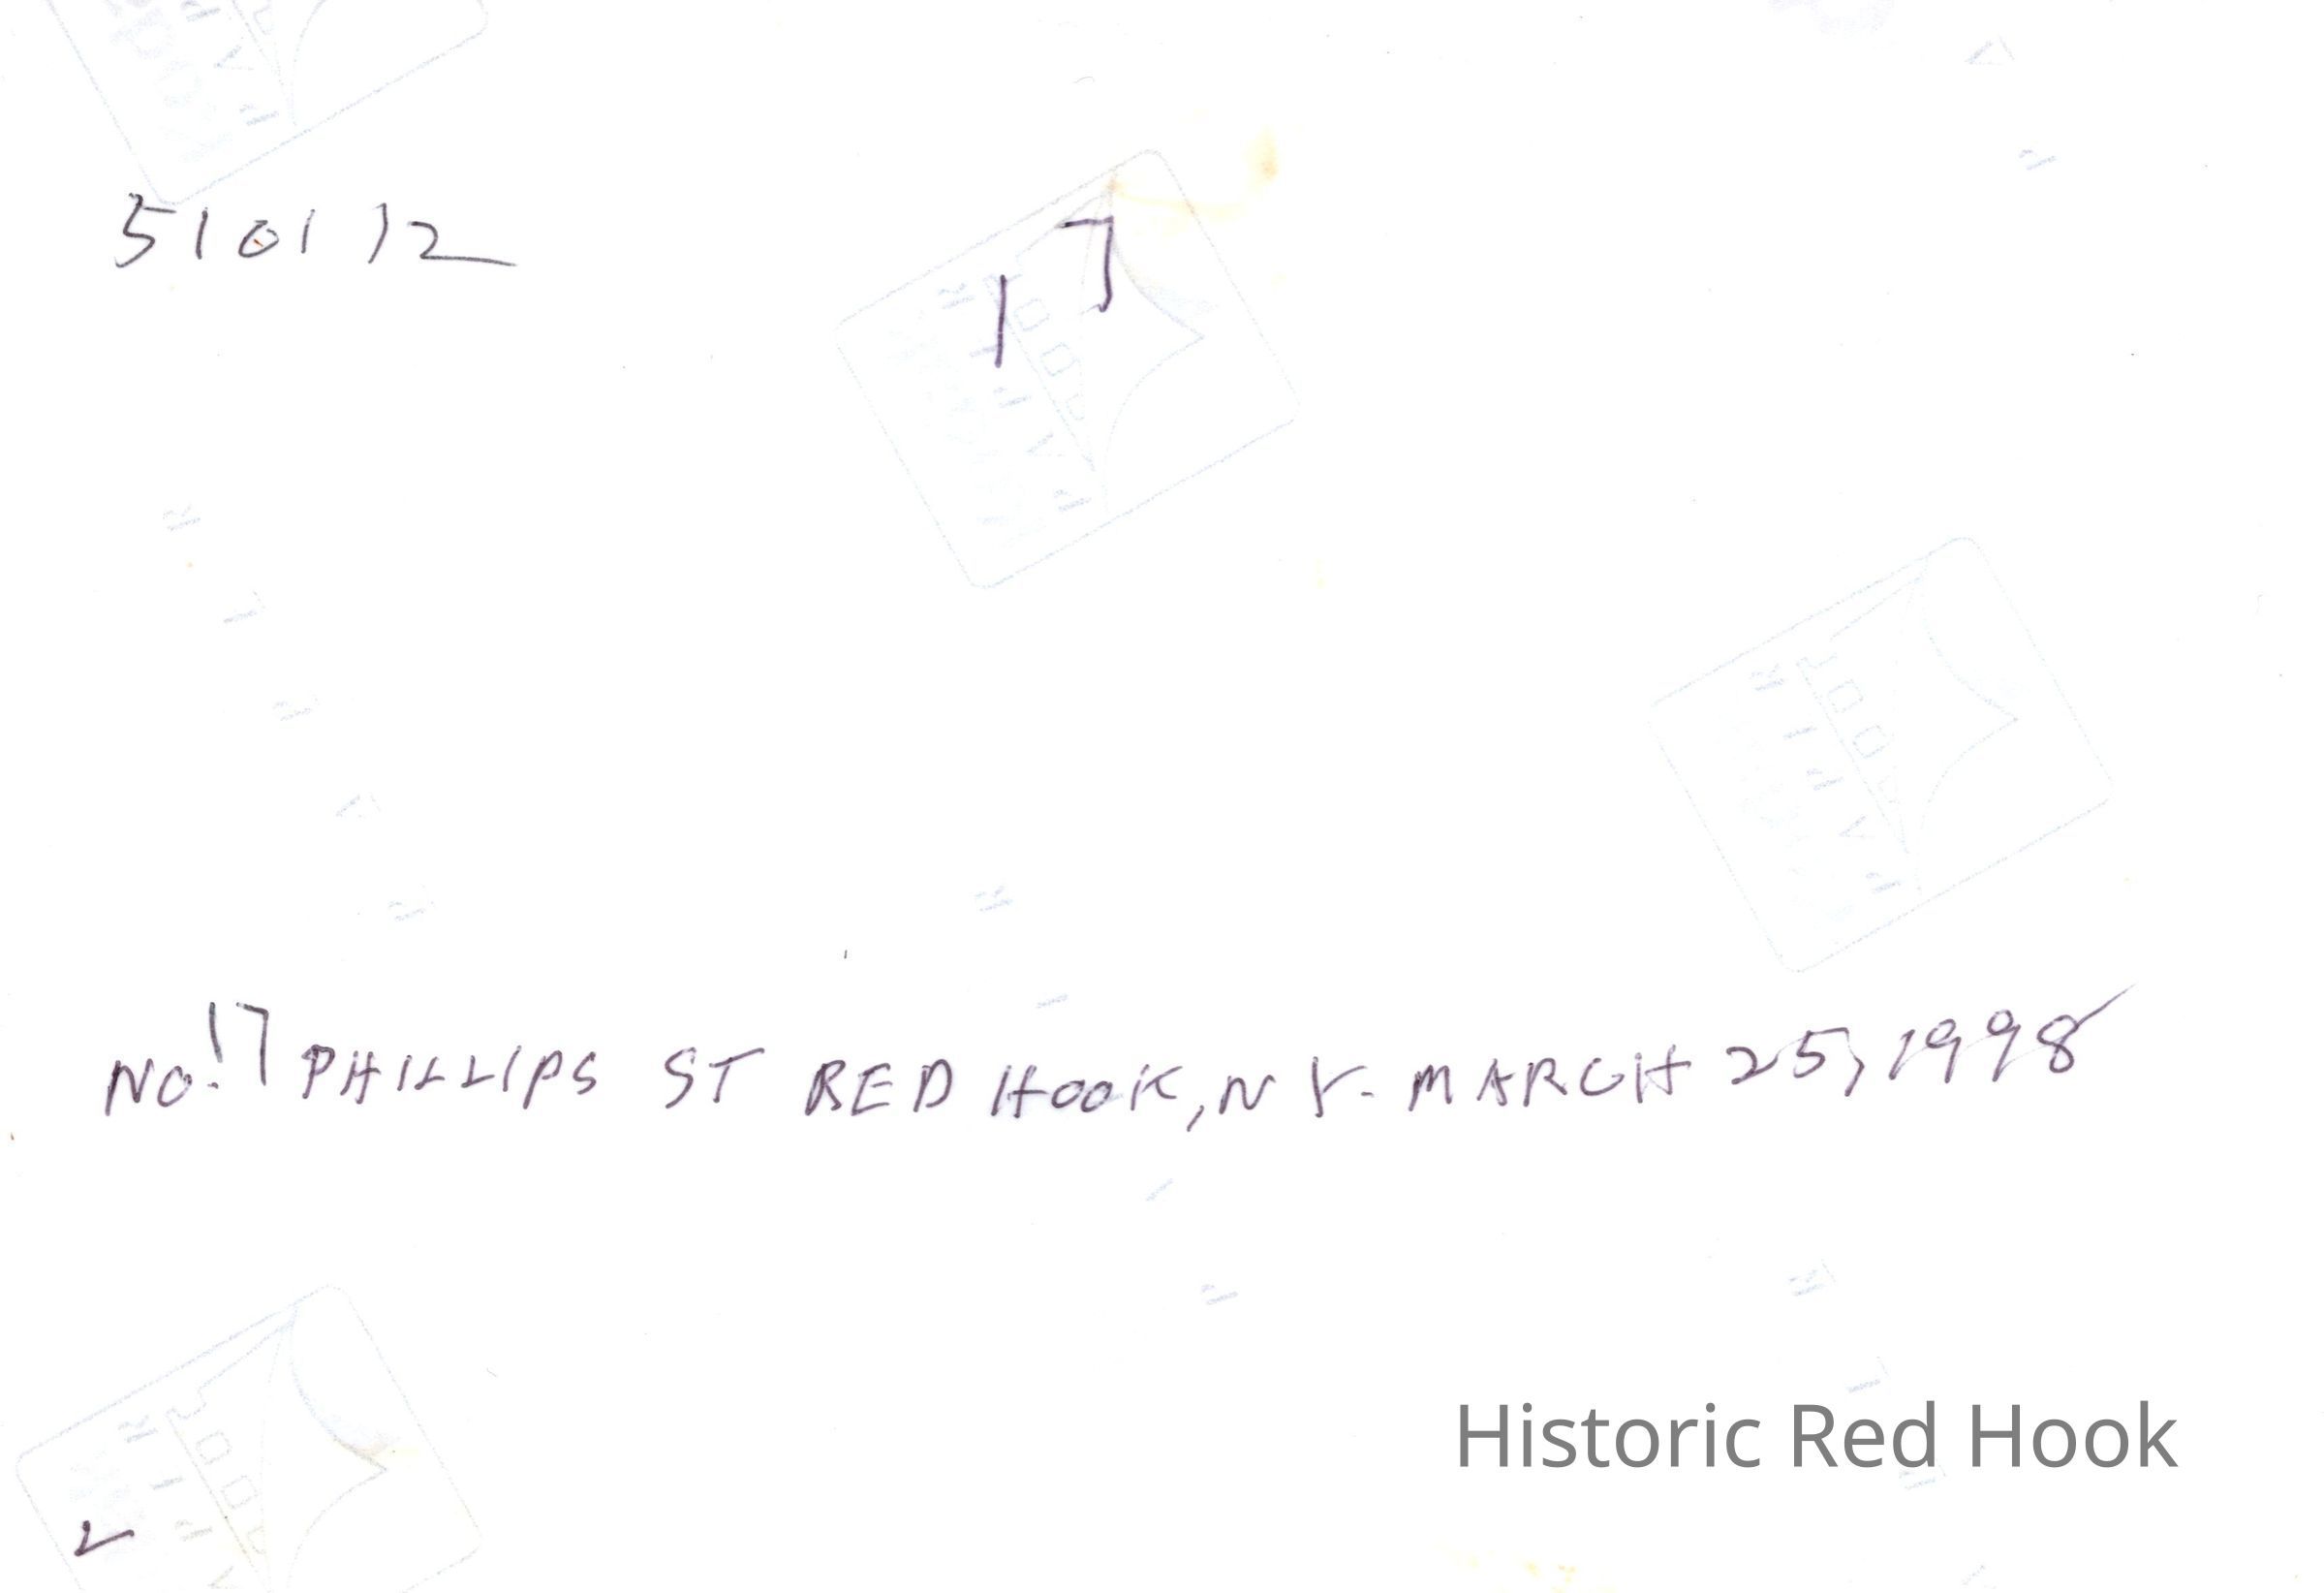 510112
17
NO. 17 PHILLIPS ST RED HOOK, N Y. MARCH 25, 1998
Historic Red Hook